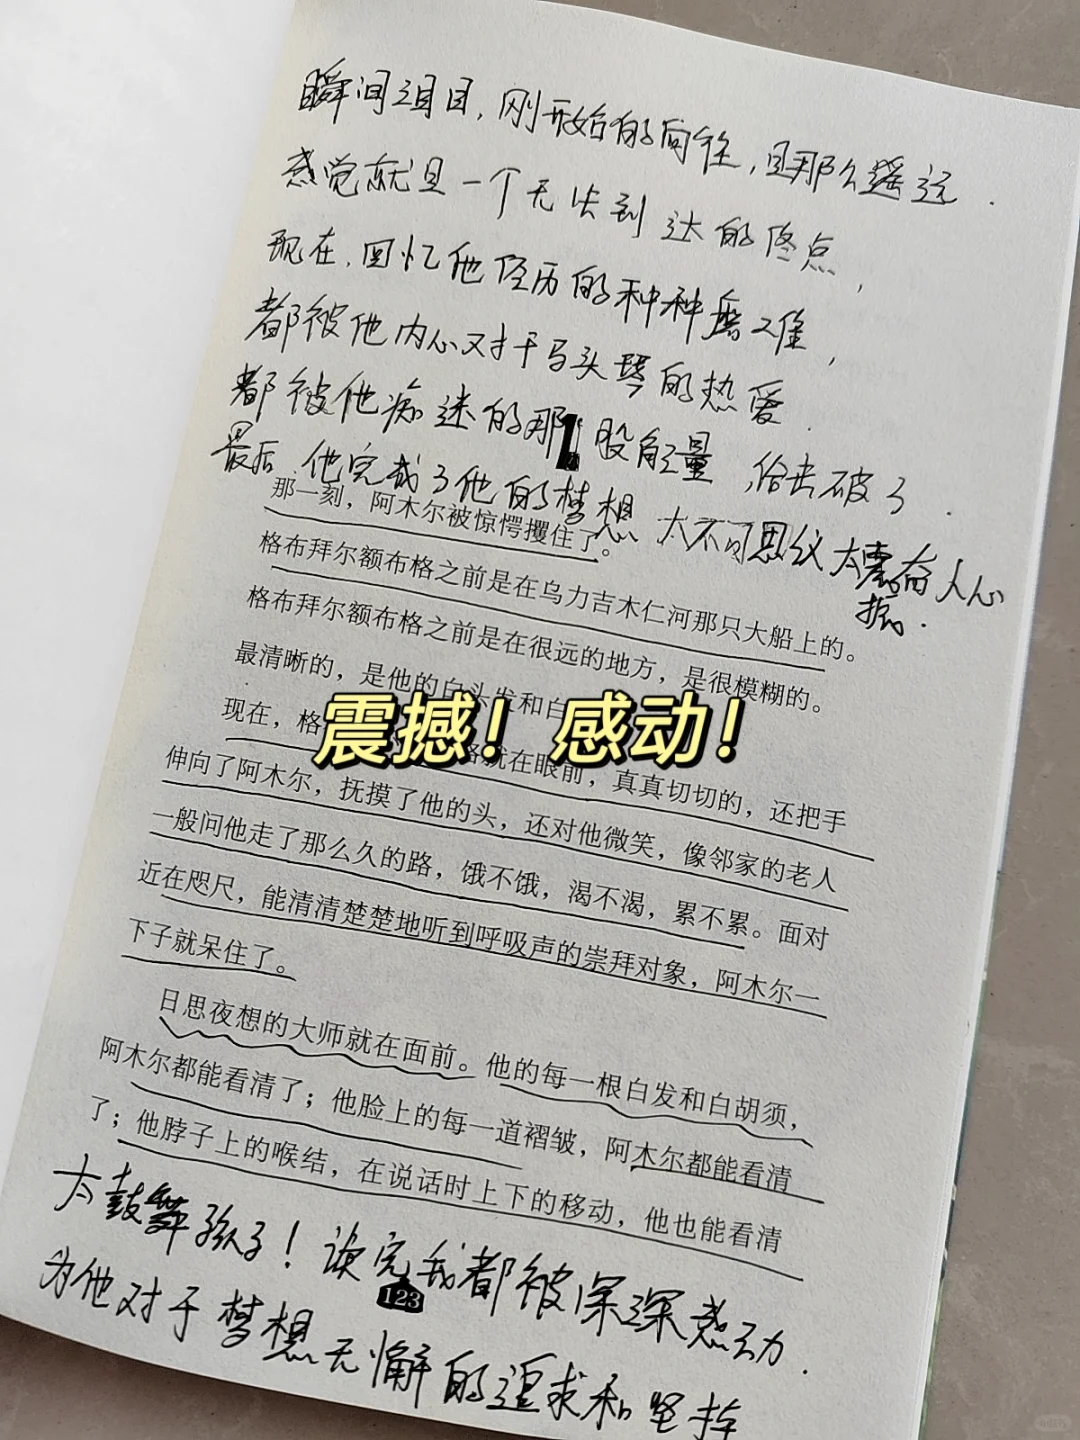 瞬间泪目,刚开始的向往,是那么遥远.
感觉就是一个无法到达的终点,
现在,回忆他经历的种种磨难,
都被他内心对于马头琴的热爱
都被他痴迷的那股能量,给击破了.
最后,他完成了他的梦想 太不可思议 太震奋人心
振.
那一刻，阿木尔被惊愕攫住了。
格布拜尔额布格之前是在乌力吉木仁河那只大船上的。
格布拜尔额布格之前是在很远的地方，是很模糊的。
最清晰的，是他的白头发和白
现在，格
就在眼前，真真切切的，还把手
震撼！感动！
伸向了阿木尔，抚摸了他的头，还对他微笑，像邻家的老人
一般问他走了那么久的路，饿不饿，渴不渴，累不累。面对
近在咫尺，能清清楚楚地听到呼吸声的崇拜对象，阿木尔一
下子就呆住了。
日思夜想的大师就在面前。他的每一根白发和白胡须，
阿木尔都能看清了；他脸上的每一道褶皱，阿木尔都能看清
了；他脖子上的喉结，在说话时上下的移动，他也能看清
太鼓舞孩子!读完我都被深深感动.
123
为他对于梦想无懈的追求和坚持